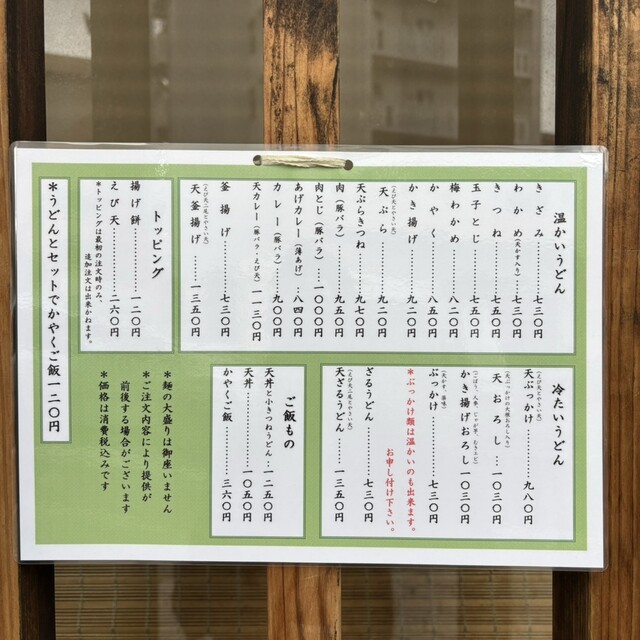 温かいうどん
きざみ…………七三〇円
わかめ（天かす入り）…七三〇円
きつね…………七五〇円
玉子とじ………七五〇円
梅わかめ………八二〇円
かやく…………八五〇円
かき揚げ………九二〇円
（えび天とやさい天）
天ぷら…………九二〇円
天ぷらきつね……九七〇円
肉（豚バラ）……九五〇円
肉とじ（豚バラ）…一〇〇〇円
あげカレー（薄あげ）…八四〇円
カレー（豚バラ）…九〇〇円
天カレー（豚バラ・えび天）一一三〇円
釜揚げ…………七三〇円
（えび天二尾とやさい天）
天釜揚げ………一三五〇円
トッピング
揚げ餅…………一二〇円
えび天…………二六〇円
＊トッピングは最初の注文時のみ、
追加注文は出来かねます。
＊うどんとセットでかやくご飯一二〇円
冷たいうどん
（えび天とやさい天）
天ぶっかけ………九八〇円
（天ぶっかけの大根おろし入り）
天おろし…一〇三〇円
かき揚げおろし一〇三〇円
ぶっかけ………七三〇円
＊ぶっかけ類は温かいのも出来ます。
お申し付け下さい。
ざるうどん………七三〇円
（えび天二尾とやさい天）
天ざるうどん……一三五〇円
ご飯もの
天丼と小きつねうどん…一二五〇円
天丼…………一〇五〇円
かやくご飯………三六〇円
＊麺の大盛りは御座いません
＊ご注文内容により提供が
前後する場合がございます
＊価格は消費税込みです